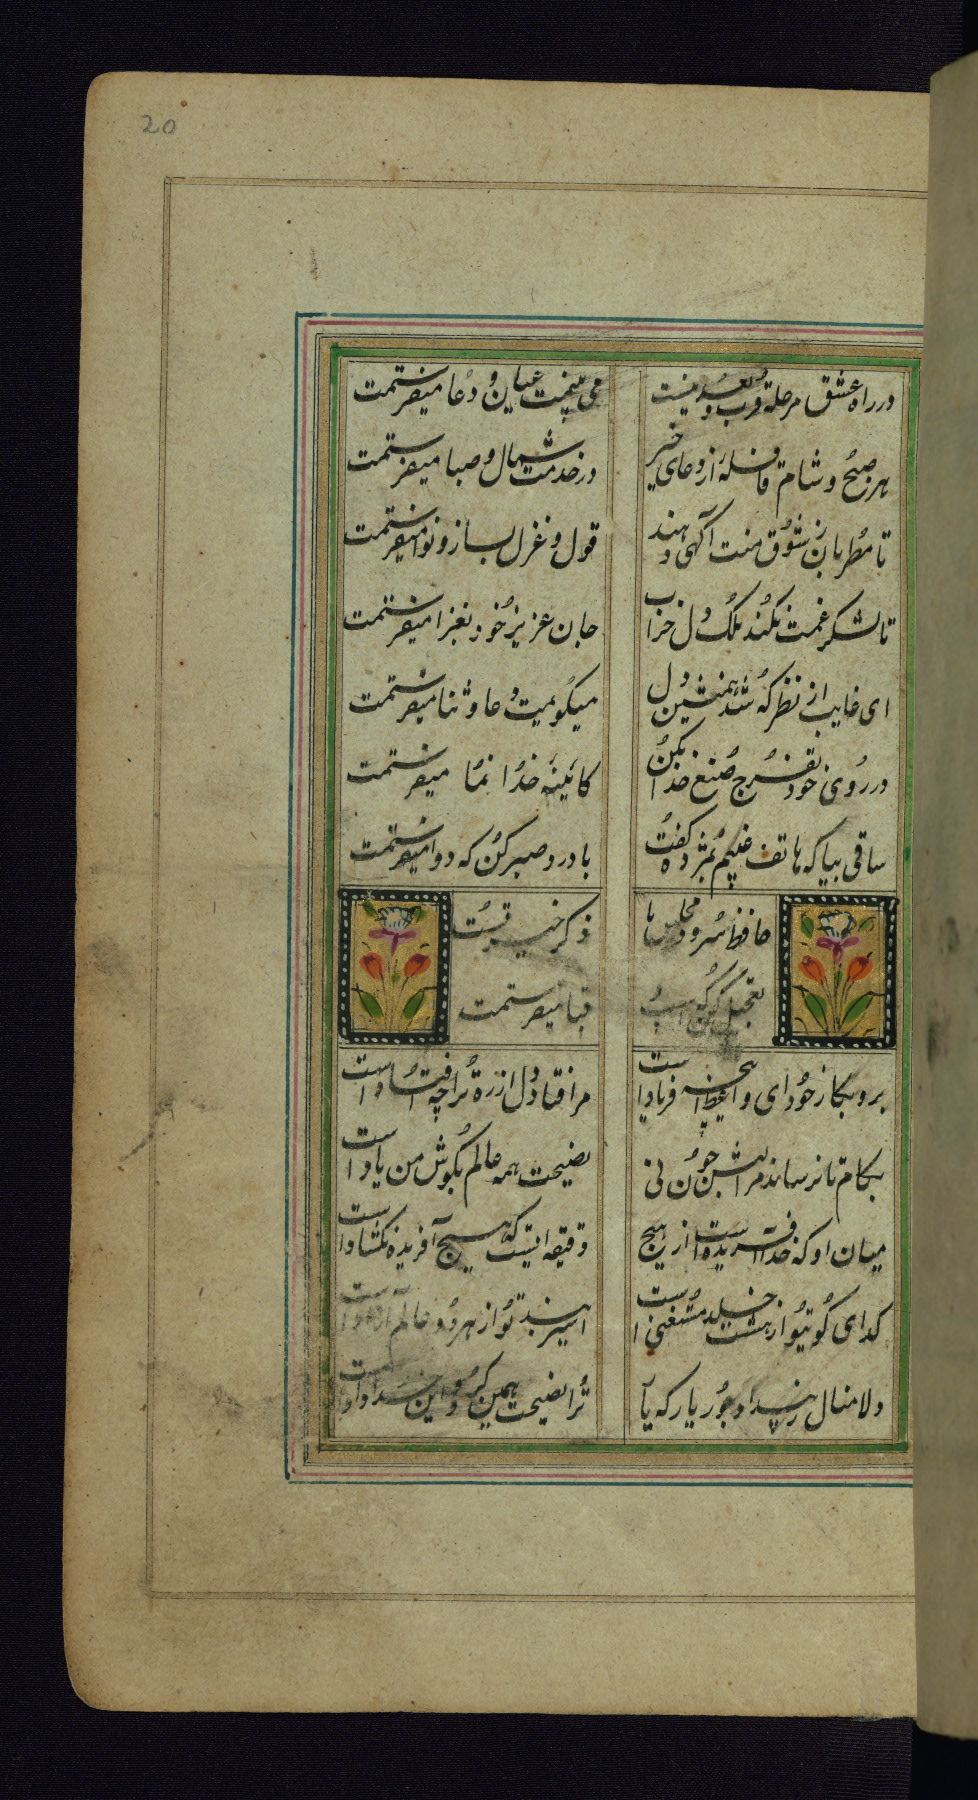 20
در راه عشق مرحلهٔ قرب و بعد نیست
می بینمت عیان و دعا میفرستمت
هر صبح و شام قافلهٔ از دعای خیر
در خدمت شمال و صبا میفرستمت
تا مطربان ز شوق منت آکهی دهند
قول و غزل بساز و نوا میفرستمت
تا لشکر غمت نکند ملک دل خراب
جان عزیز خود بغزا میفرستمت
ای غایب از نظر که شدی همنشین دل
میکویمت دعا و ثنا میفرستمت
در روی خود تفرج صنع خدا بکن
کائینهٔ خدا نما میفرستمت
ساقی بیا که هاتف غیبم بمژده کفت
با درد صبر کن که دوا میفرستمت
حافظ سرود مجلس ما
ذکر خیر تست
تعجیل کن که اسب
قبا میفرستمت
برو بکار خود ای واعظ این چه فریاد است
مرا فتاد دل از ره ترا چه افتاد است
بکام تا نرساند مرا لبش چون نی
نصیحت همه عالم بکوش من باد است
میان او که خدا آفریده است از هیچ
دقیقه ایست که هیچ آفریده نکشاد است
کدای کوی تو از هشت خلد مستغنی است
اسیر بند تو از هر دو عالم آزاد است
دلا منال ز بیداد و جور یار که یار
ترا نصیحت همین کرد و این خداداد است